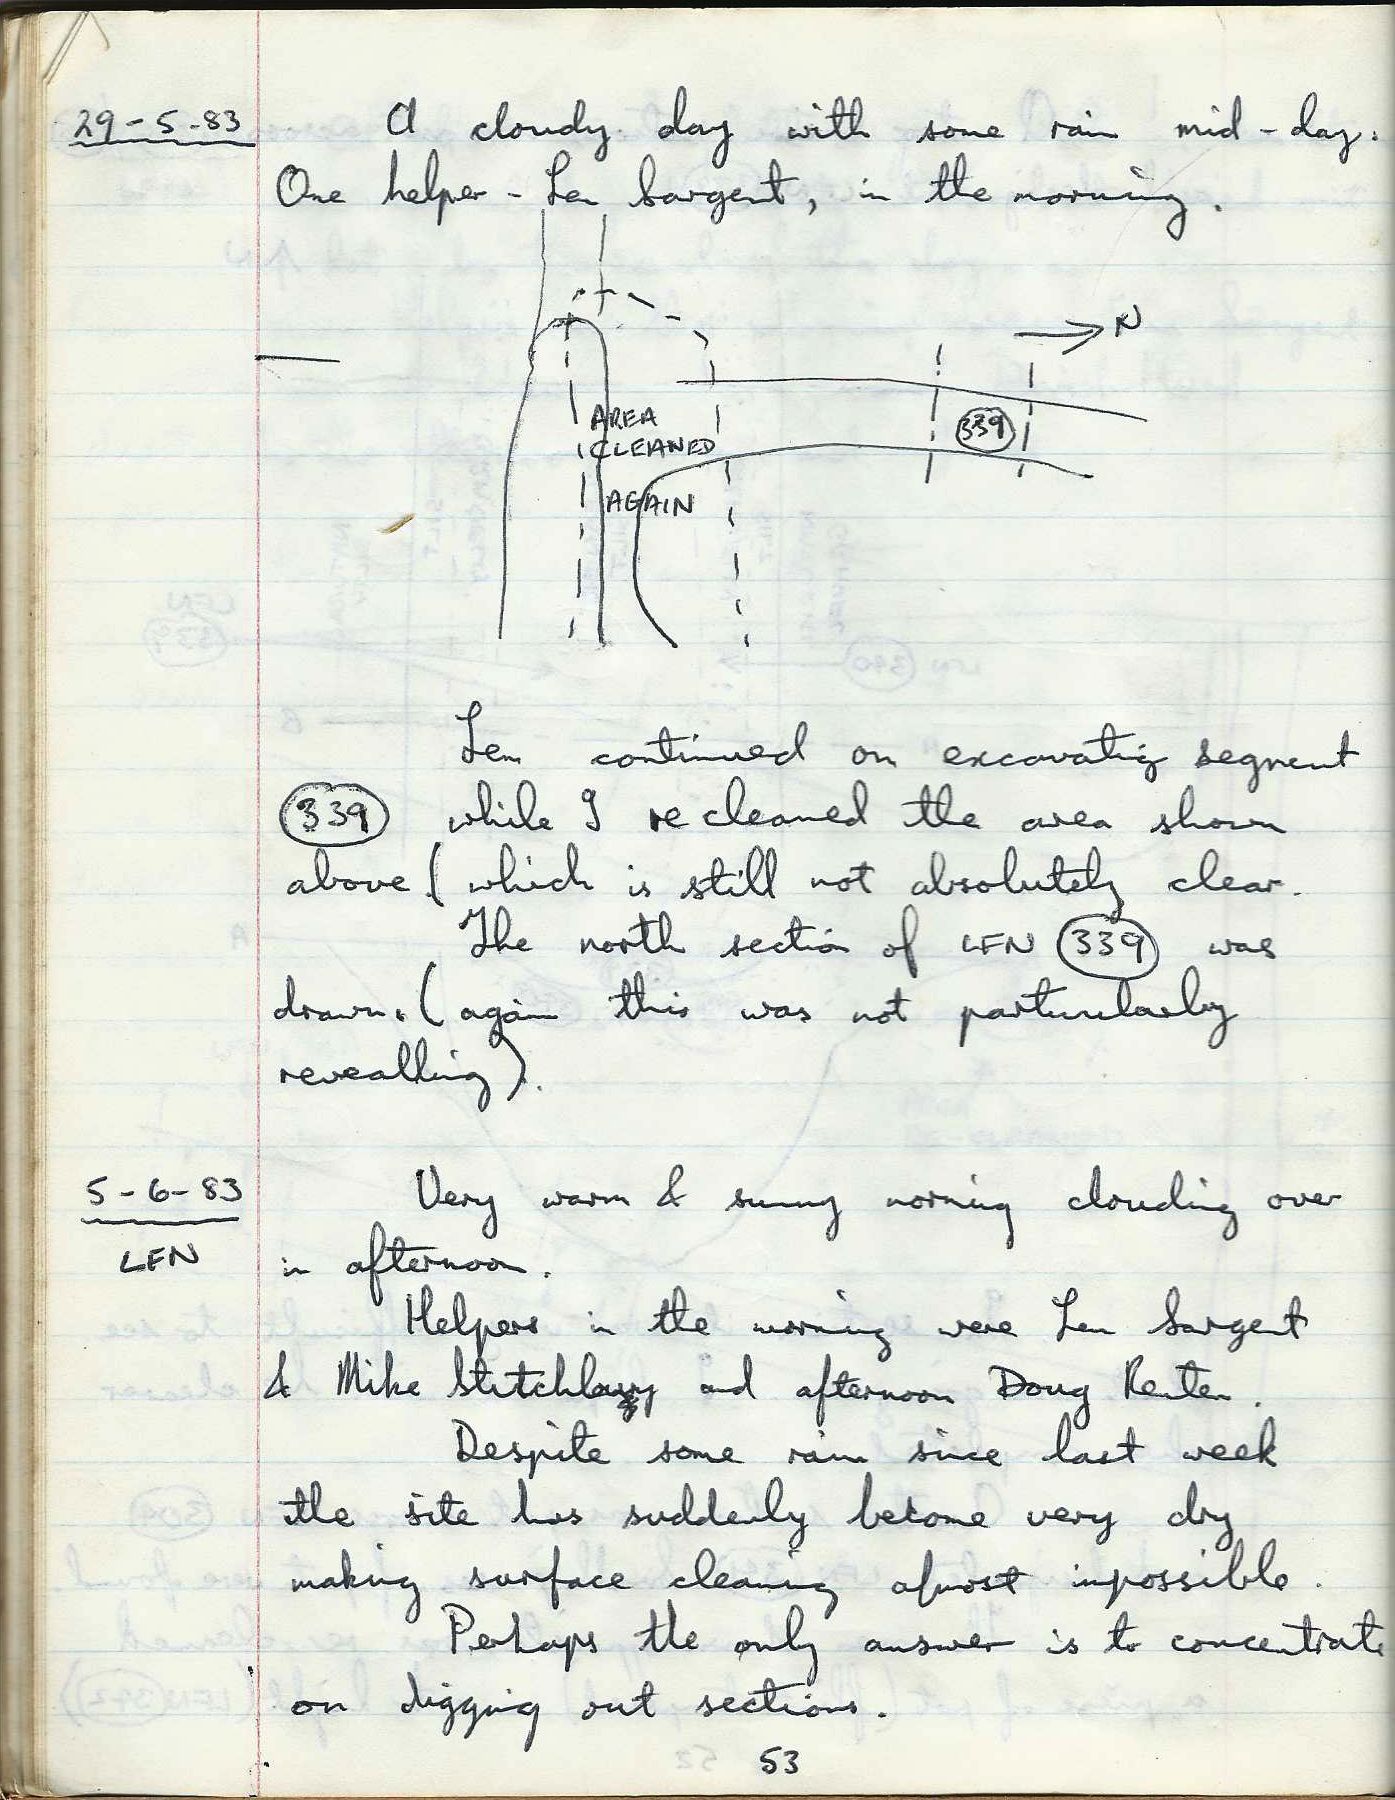 29-5-83 A cloudy day with some rain mid-day.
One helper - Len Sargent, in the morning.
N
AREA
CLEANED
339
AGAIN
Len continued on excavating segment
339 while I recleaned the area shown
above (which is still not absolutely clear.
The north section of LFN 339 was
drawn. (again this was not particularly
revealling).
5-6-83 Very warm & sunny morning clouding over
LFN in afternoon.
Helpers in the morning were Len Sargent
& Mike and afternoon Doug
Despite some rain since last week
the site has suddenly become very dry
making surface cleaning almost impossible.
Perhaps the only answer is to concentrate
on digging out sections.
53